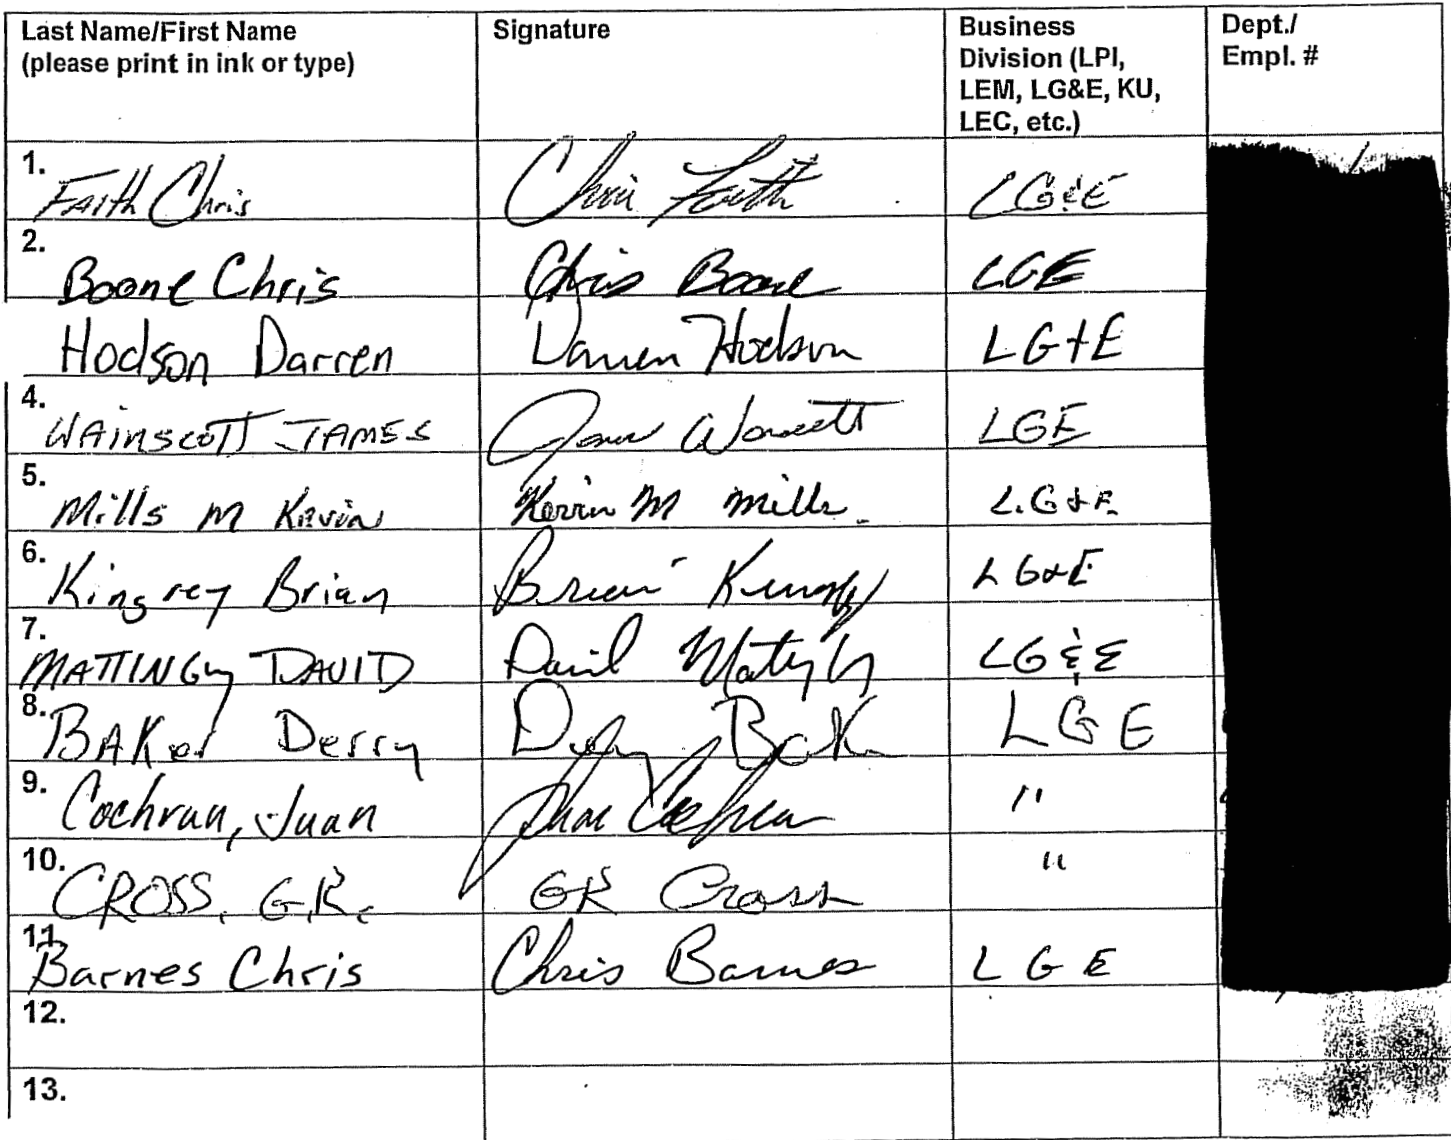 Last Name/First Name Signature Business Dept./
(please print in ink or type) Division (LPI, Empl. #
LEM, LG&E, KU,
LEC, etc.)
1. Faith Chris Chris Faith LG&E
2. Boone Chris Chris Boone LGE
Hodson Darren Darren Hodson LG+E
4. WAINSCOTT JAMES James Wainscott LGE
5. Mills M Kevin Kevin M Mills. L.G&E.
6. Kingrey Brian Brian Kingrey LG&E
7. MATTINGLY DAVID David Mattingly LG&E
8. BAKer Derry Derry Baker LGE
9. Cochran, Juan Juan Cochran "
10. CROSS, G.R. GR Cross "
11. Barnes Chris Chris Barnes LGE
12.
13.